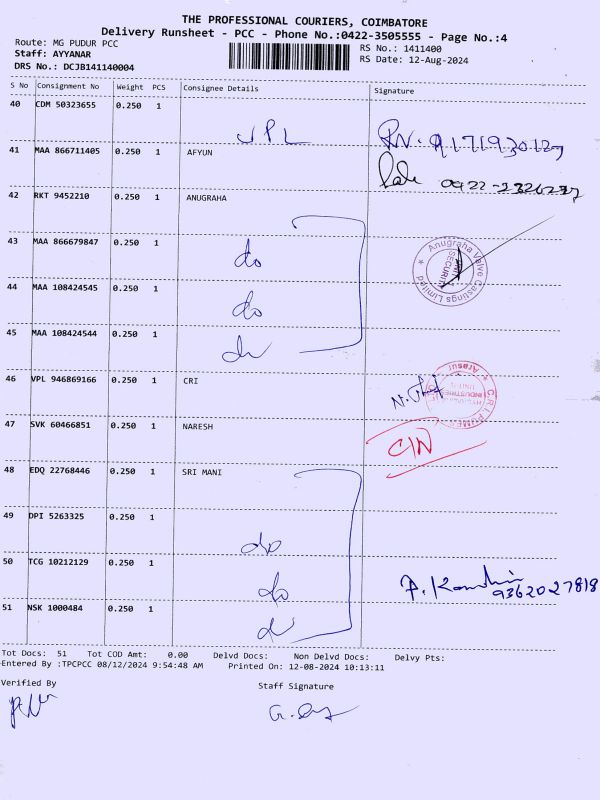 THE PROFESSIONAL COURIERS, COIMBATORE
Delivery Runsheet - PCC - Phone No.:0422-3505555 - Page No.:4
Route: MG PUDUR PCC
RS No.: 1411400
Staff: AYYANAR
RS Date: 12-Aug-2024
DRS No.: DCJB141140004
S No Consignment No Weight PCS Consignee Details Signature
40 CDM 50323655 0.250 1
JPL
41 MAA 866711405 0.250 1 AFYUN
42 RKT 9452210 0.250 1 ANUGRAHA
43 MAA 866679847 0.250 1 do
Anugraha Valve Castings Limited
SECURITY
44 MAA 108424545 0.250 1 do
45 MAA 108424544 0.250 1 do
46 VPL 946869166 0.250 1 CRI
47 SVK 60466851 0.250 1 NARESH
48 EDQ 22768446 0.250 1 SRI MANI
49 DPI 5263325 0.250 1 do
50 TCG 10212129 0.250 1 do
9362027818
51 NSK 1000484 0.250 1 do
Tot Docs: 51 Tot COD Amt: 0.00 Delvd Docs: Non Delvd Docs: Delvy Pts:
Entered By :TPCPCC 08/12/2024 9:54:48 AM Printed On: 12-08-2024 10:13:11
Verified By
Staff Signature